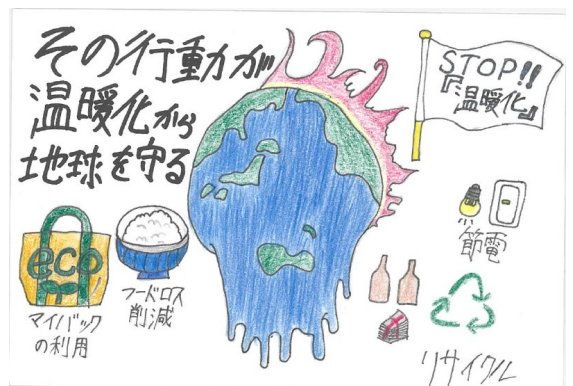 その行動が
温暖化から
地球を守る
STOP!!
『温暖化』
eco
マイバック
の利用
フードロス
削減
節電
リサイクル